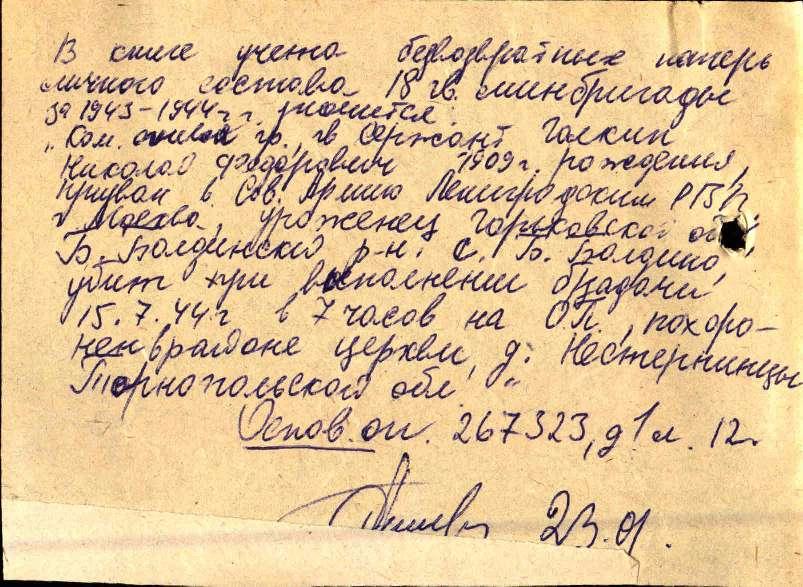 В книге учета безвозвратных потерь
личного состава 18 гв. минбригады
за 1943-1944 г.г. значится:
„Ком. гр., гв сержант Галкин
Николай Федорович 1909 г. рождения,
призван в Сов. Армию Ленинградским РВК
г. Москва, уроженец Горьковской обл.
Б. Болдинский р-н. с. Б. Болдино,
убит при выполнении б/задачи
15.7.44 г в 7 часов на ОП., похоро-
нен в районе церкви, д. Нестерницы
Тарнопольской обл "
Основ. оп. 267323, д 1 л. 12.
23.01.